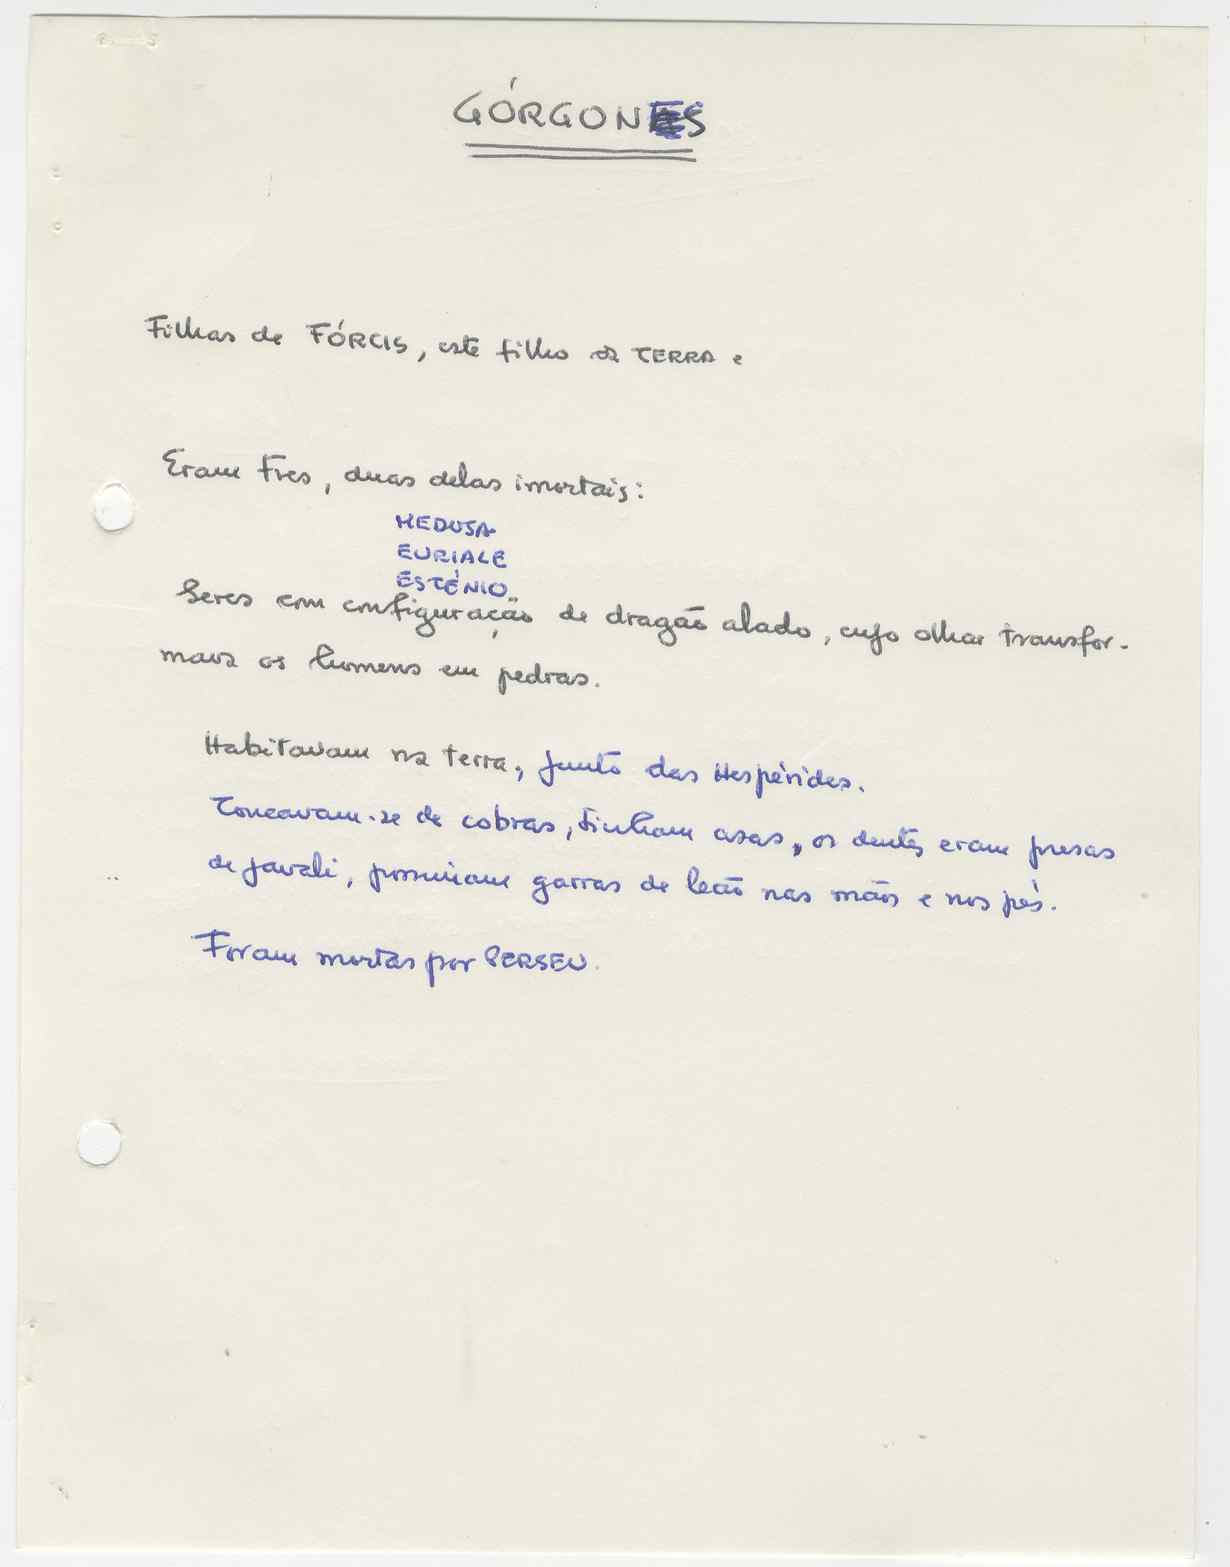 GÓRGONES
Filhas de FÓRCIS, este filho da TERRA e
Eram tres, duas delas imortais:
MEDUSA
EURIALE
ESTÉNIO
Seres com configuração de dragão alado, cujo olhar transfor-
mava os homens em pedras.
Habitavam na terra, junto das Hespérides.
Toucavam-se de cobras, tinham asas, os dentes eram presas
de javali, possuiam garras de leão nas mãos e nos pés.
Foram mortas por PERSEU.